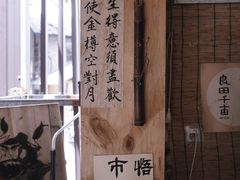 生得意須盡歡
使金樽空對月
良田千亩
市悟